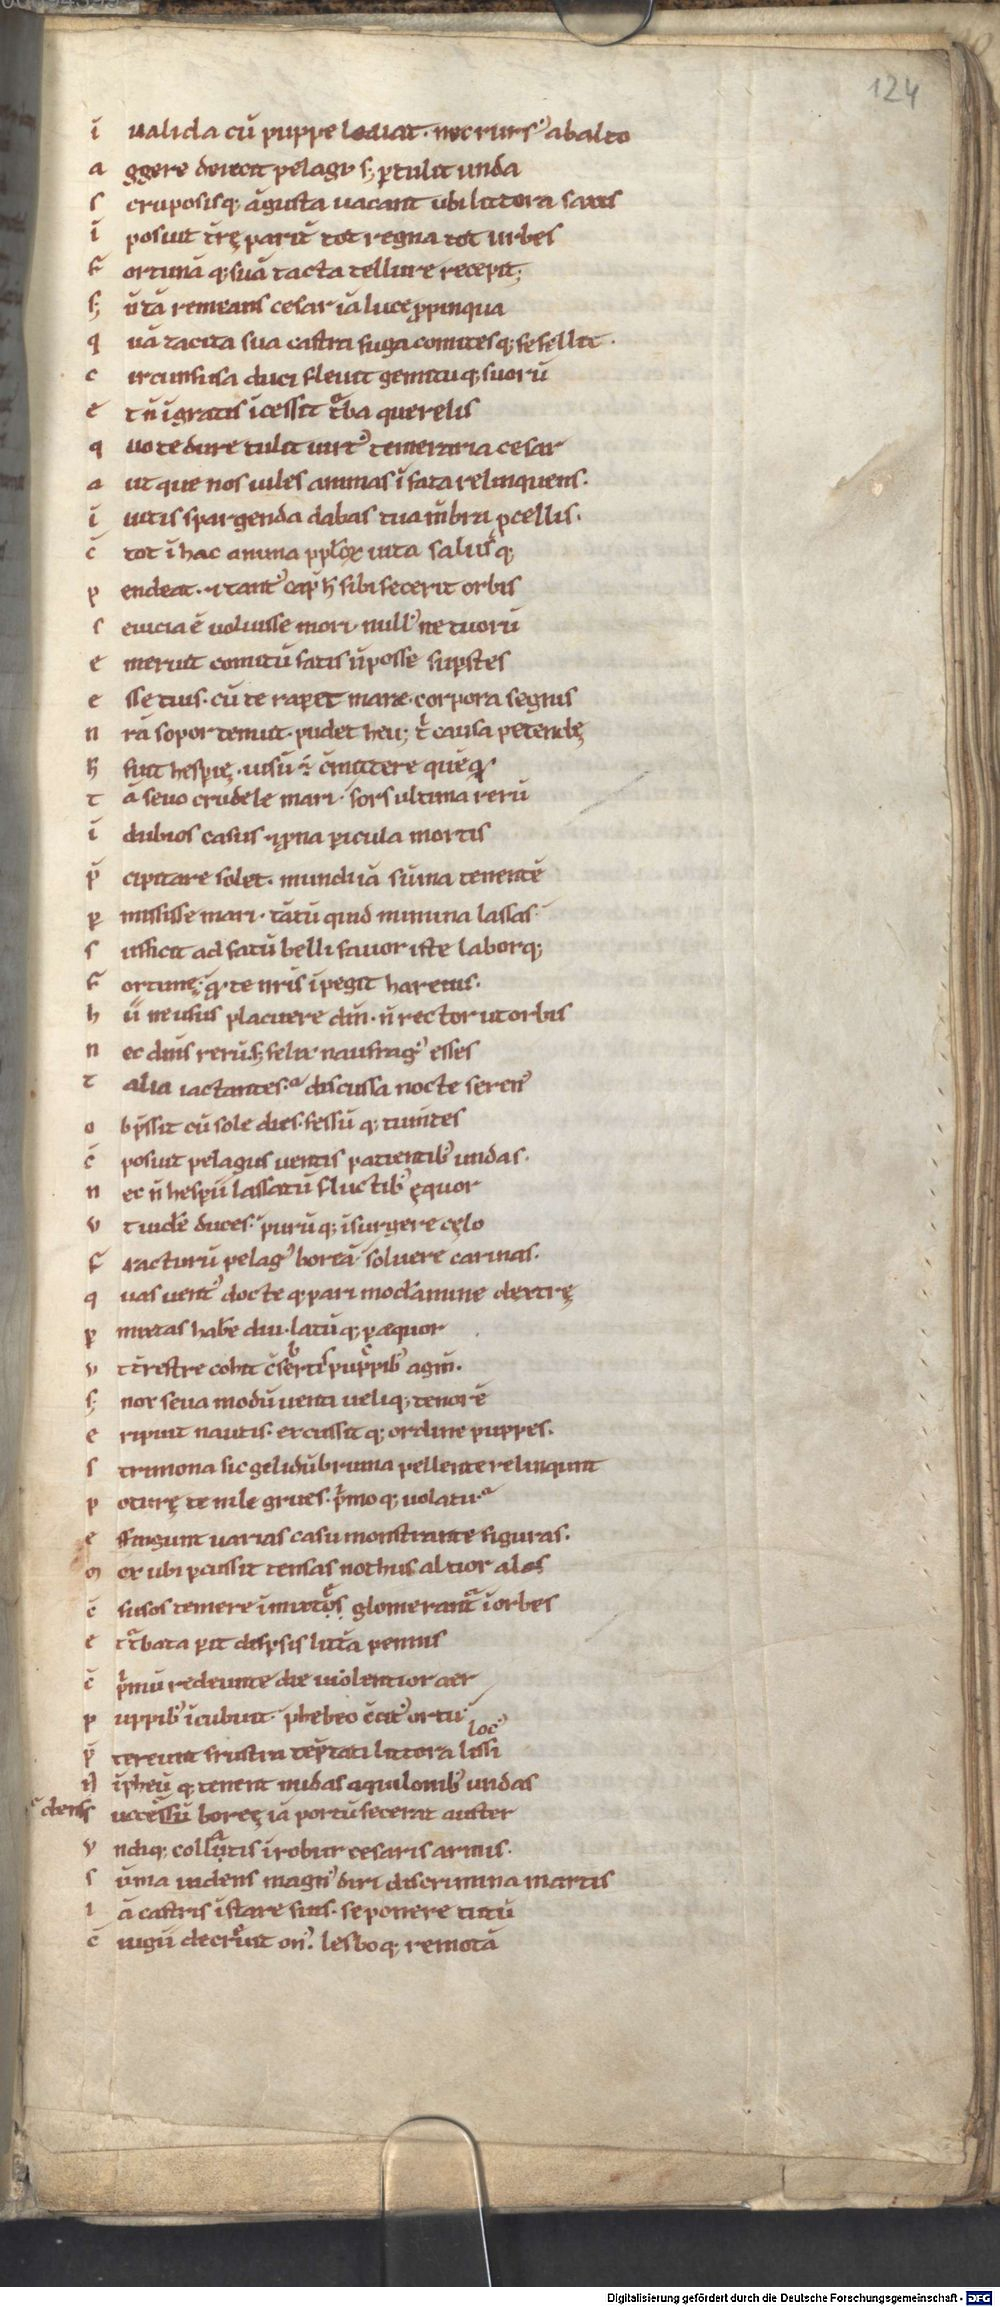 124
i ualida cū puppe lediat· nec rurs᾽ abalto
a ggere deiecit pelagi sꝫ ꝑtulit unda
s cruposisqꝫ āgusta uacant ubi littora saxis
i posuit tr̄ę parit̄ tot regna tot urbes
f ortunā qꝫ suā tacta tellure recepit;
sꝫ n̄ tā remeans cesar iā luce ꝓpinqua
q uā tacita sua castra fuga comitesqꝫ fefellit·
c ircunfusa duci fleuit gemituqꝫ suorū
e t n̄ īgratis īcessit tᵒba querelis
q uo te dure tulit uirt᾽ temeraria cesar
a ut que nos uiles animas ī fata relinquens·
ī uitis spargenda dabas tua mēbra ꝓcellis·
c̄ tot ī hac anima ppl̄oꝝ uita salusqꝫ
p endeat· ⁊ tant᾽ cap̄ h̄ sibi fecerit orbis
s euicia ē uoluisse mori· null᾽ ne tuorū
e meruit comitū fatis n̄ posse sup̄stes
e sse tuis· cū te raꝑet mare· corpora segnis
n r̄a sopor tenuit· pudet heu; h̄ causa petendę
h̄ fuit hesꝑię· uisū ÷ c̄mittere quēqꝫ
t ā seuo crudele mari· sors ultima rerū
i dubios casus ⁊ ꝓna ꝑicula mortis
p̄ cipitare solet· mundi iā sūma tenentē
ꝑ misisse mari· tātū quid numina lassas·
s ufficit ad fatū belli fauor iste laborqꝫ
f ortunę; qꝫ te nr̄is īpegit harenis·
h ii ne usus placuere dm̄· n̄ rector ut orbis
n ec dn̄s rerū· sꝫ felix naufrag᾽ esses
t alia iactantes· discussa nocte seren᾽
o bp̄ssit cū sole dies· fessū qꝫ tum̄tes
c̄ posuit pelagus uentis patientib᾽ undas·
n ec n̄ hesꝑii lassatū fluctib᾽ ęquor
v t uider̄ duces· purūqꝫ īsurgere cęlo
f racturū pelag᾽ boreā· soluere carinas·
q uas uent᾽ docte qꝫ pari mod̄amine dextrę
ꝑ mixtas hab̄e diu· latūqꝫ ꝑ ęquor
v t t̄restre cohit c̄sertis puppib᾽ agm̄·
sꝫ nox seua modū uenti ueliqꝫ tenorē
e ripuit nautis· excussitqꝫ ordine puppes·
s trimona sic gelidū bruma pellente relinqunt
p oturę te nile grues· p̄moqꝫ uolatu·
e ffingunt uarias casu monstrante figuras·
m ox ubi ꝑcussit tensas nothus altior alas
c̄ fusos temere īmixtę glomerantᵃ ī orbes
e t tᵒbata ꝑit disꝑsis littᵃ pennis
c̄ p̄mū redeunte die uiolentior aer
p uppib᾽ īcubuit· phebeo c̄cit᾽ ortu·
p̄ tereunt frustra tēptati littora lissi loc᾽
n ī̄pheūqꝫ tenent nudas aquilonib᾽ undas
s uccessū boreę iā portū fecerat auster c̄dens
v ndiqꝫ collᵃtis ī robur cesaris armis·
s ūma uidens magn᾽ diri discrimina martis
i ā castris īstare suis· seponere tutū
c̄ iugii decreuit on᾽· lesboqꝫ remotā
Digitalisierung gefördert durch die Deutsche Forschungsgemeinschaft - DFG